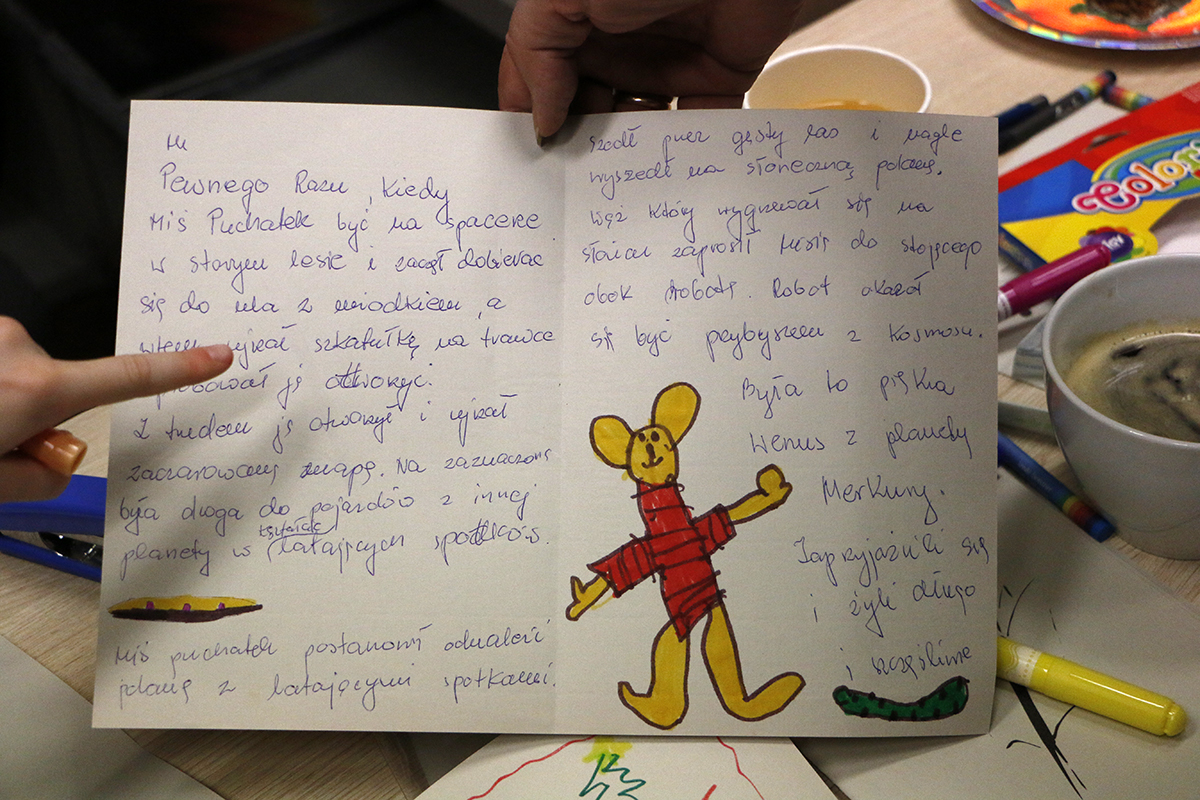 Mi
Pewnego Razu, kiedy
Miś Puchatek być na spacerze
w starym lesie i zaczął dobierac
się do ula z miodkiem, a
wtem ujrzał szkatułkę na trawce
próbował ją otworzyć.
Z trudem ją otworzył i ujrzał
zaczarowaną mapę. Na zaznaczona
była droga do pojazdów z innej
planety w latających spodków.
Miś puchatek postanowił odnaleźć
polanę z latającymi spotkami.
szedł przez gęsty las i nagle
wyszedł na słoneczną polanę.
Wąż który wygrzewał się na
słońcu zaprosił Misia do stojącego
obok robota. Robot okazał
się być przybyszem z kosmosu.
Była to piękna
Wenus z planety
Merkury.
Zaprzyjaźnili się
i żyli długo
i szczęśliwie
Colori